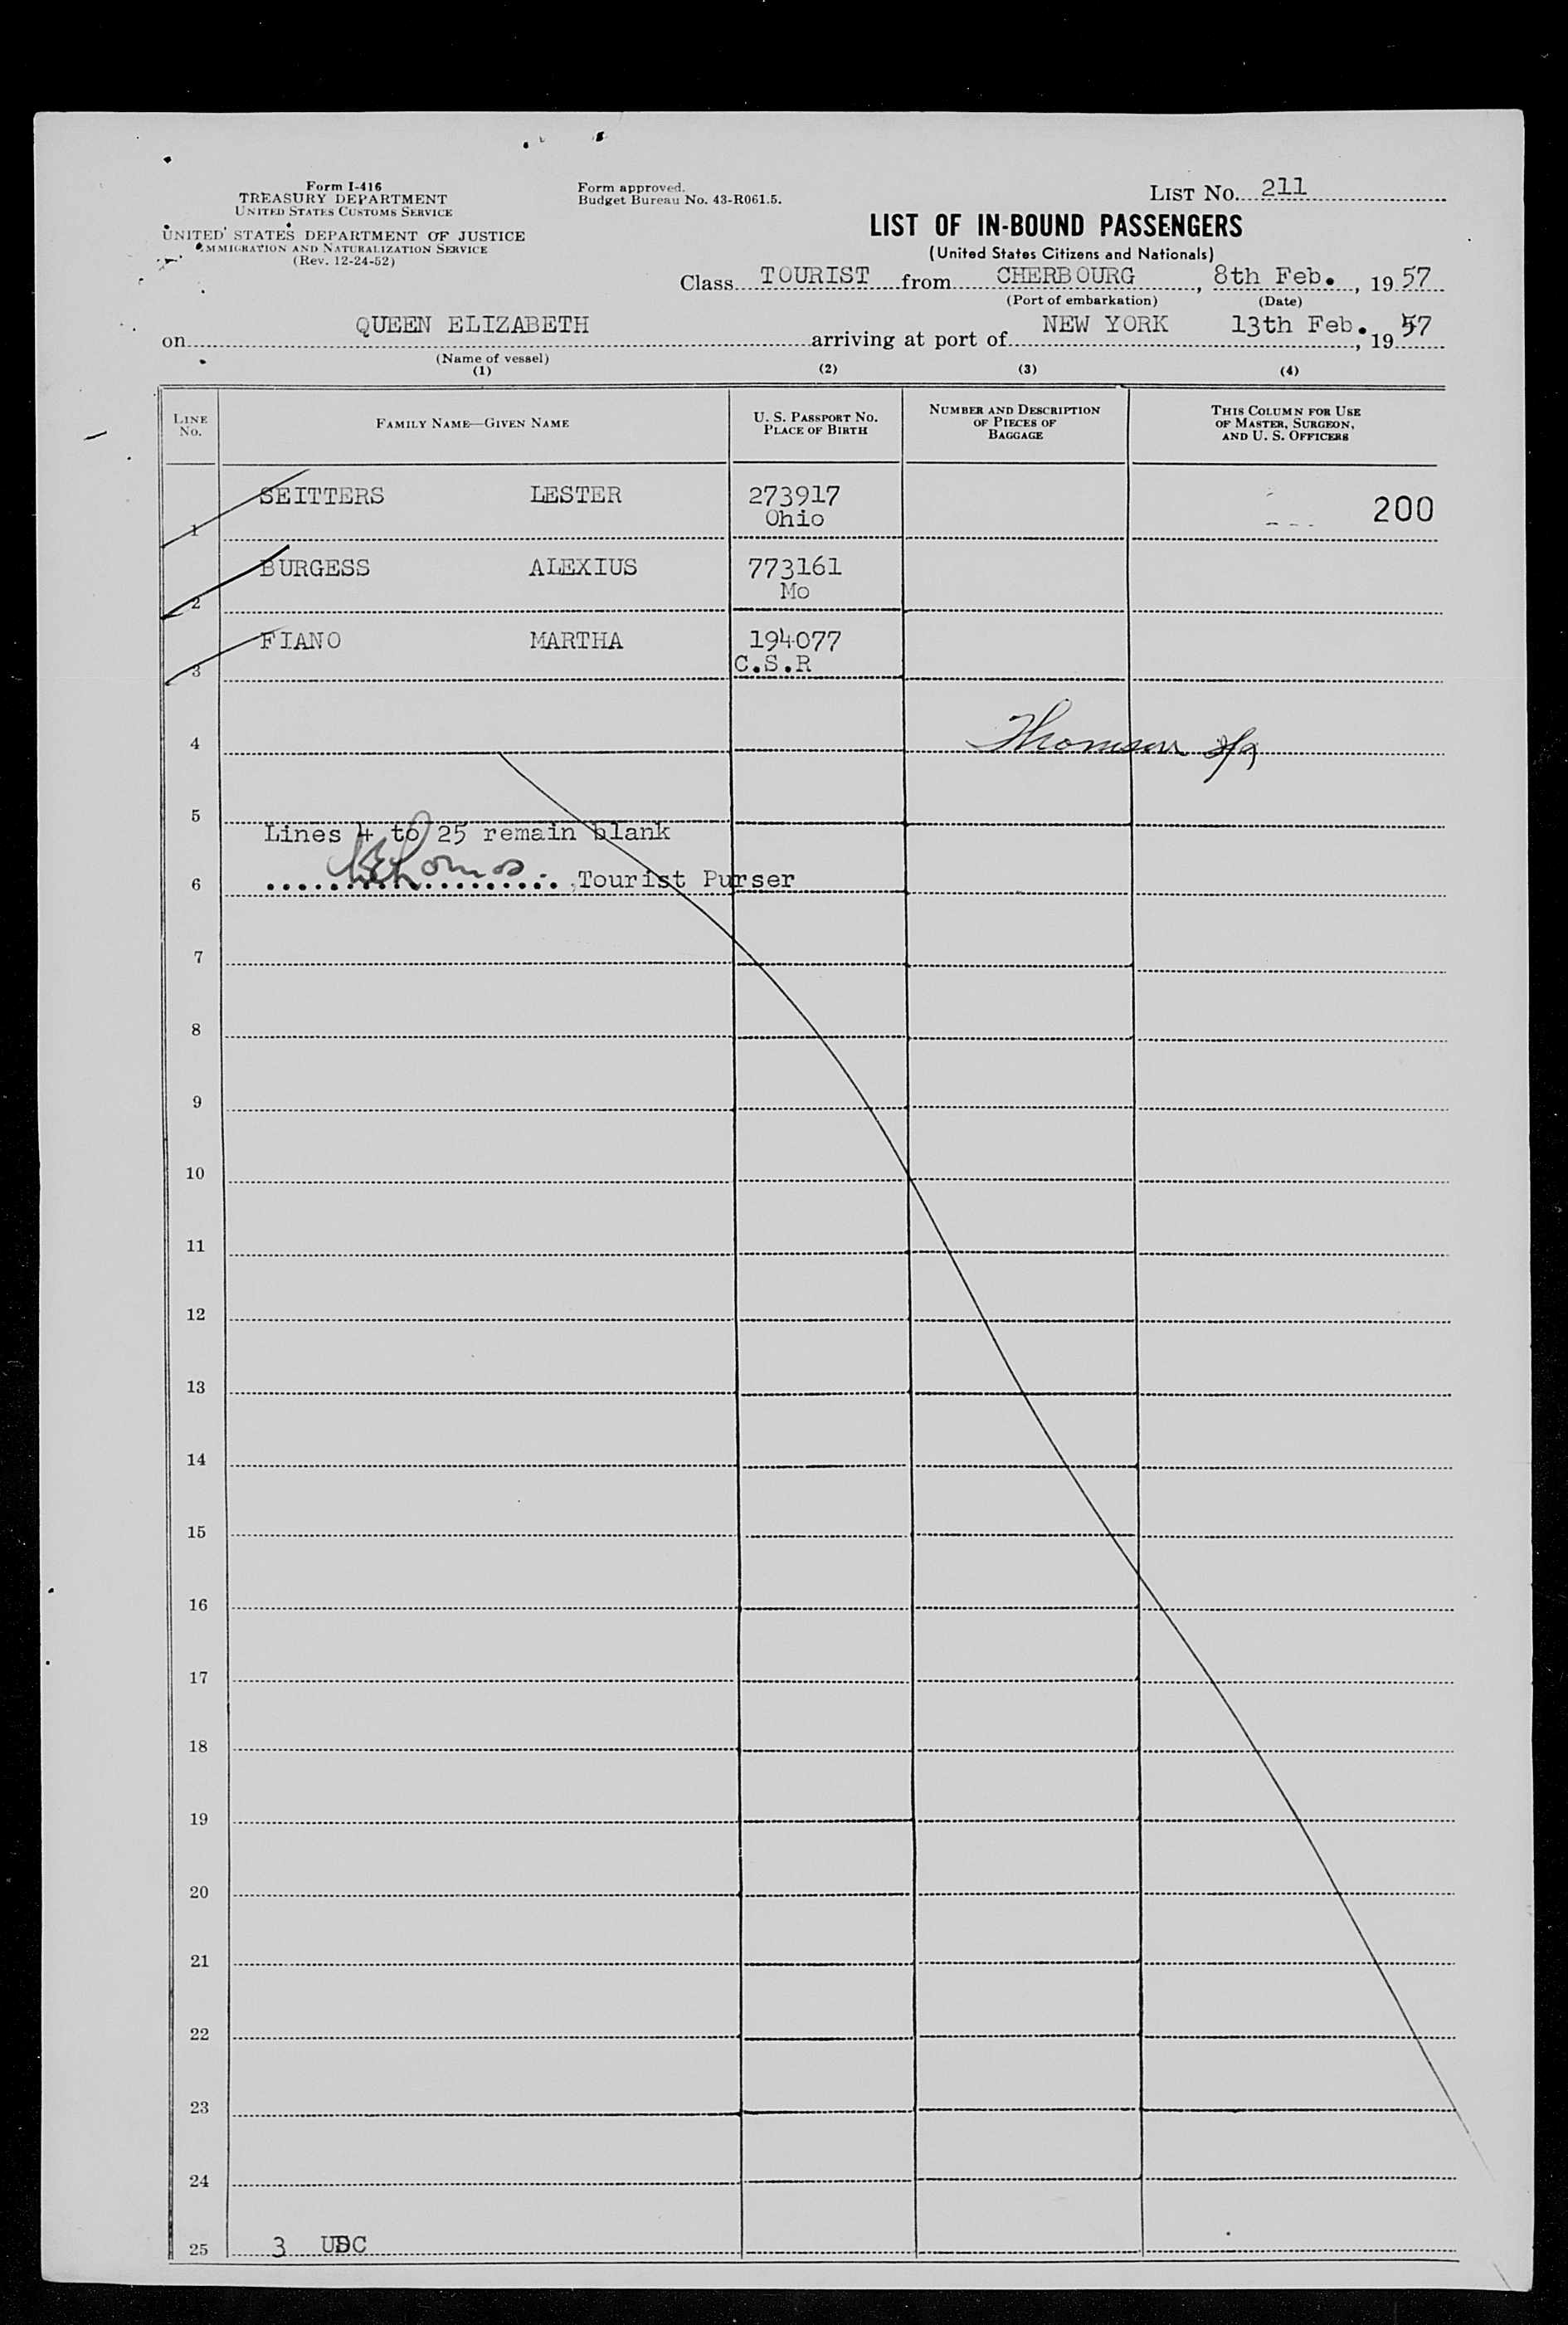 Form I-416
TREASURY DEPARTMENT
UNITED STATES CUSTOMS SERVICE
UNITED STATES DEPARTMENT OF JUSTICE
IMMIGRATION AND NATURALIZATION SERVICE
(Rev. 12-24-52)
Form approved.
Budget Bureau No. 43-R061.5.
LIST No. 211
LIST OF IN-BOUND PASSENGERS
(United States Citizens and Nationals)
Class TOURIST from CHERBOURG, 8th Feb., 1957
(Port of embarkation) (Date)
on QUEEN ELIZABETH arriving at port of NEW YORK 13th Feb., 1957
(Name of vessel)
(1) (2) (3) (4)
LINE No. FAMILY NAME—GIVEN NAME U. S. PASSPORT No. PLACE OF BIRTH NUMBER AND DESCRIPTION OF PIECES OF BAGGAGE THIS COLUMN FOR USE OF MASTER, SURGEON, AND U. S. OFFICERS
1 SEITTERS LESTER 273917 200
Ohio
2 BURGESS ALEXIUS 773161
Mo
3 FIANO MARTHA 194077
C.S.R
4 Thomson
5
Lines 4 to 25 remain blank
6 Tourist Purser
7
8
9
10
11
12
13
14
15
16
17
18
19
20
21
22
23
24
25 3 USC